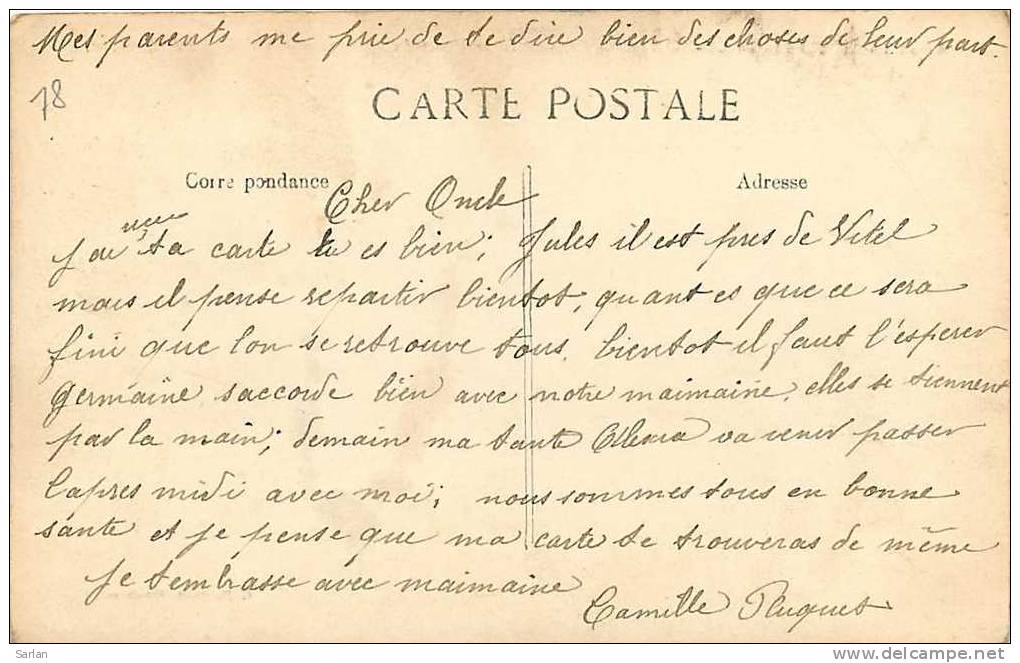 Mes parents me prie de te dire bien des choses de leur part.
78
CARTE POSTALE
Corre pondance
Adresse
Cher Oncle
reçu
J'ai ta carte tu es bien; Jules il est pres de Vitel
mais il pense repartir bientot, quant es que ce sera
fini que lon se retrouve tous. bientot il faut l'esperer
germaine saccorde bien avec notre maimaine, elles se tiennent
par la main; demain ma tante va venir passer
lapres midi avec moi; nous sommes tous en bonne
sante et je pense que ma carte te trouveras de même
Je t'embrasse avec maimaine
Camille Pluquet
Sarlan
www.delcampe.net